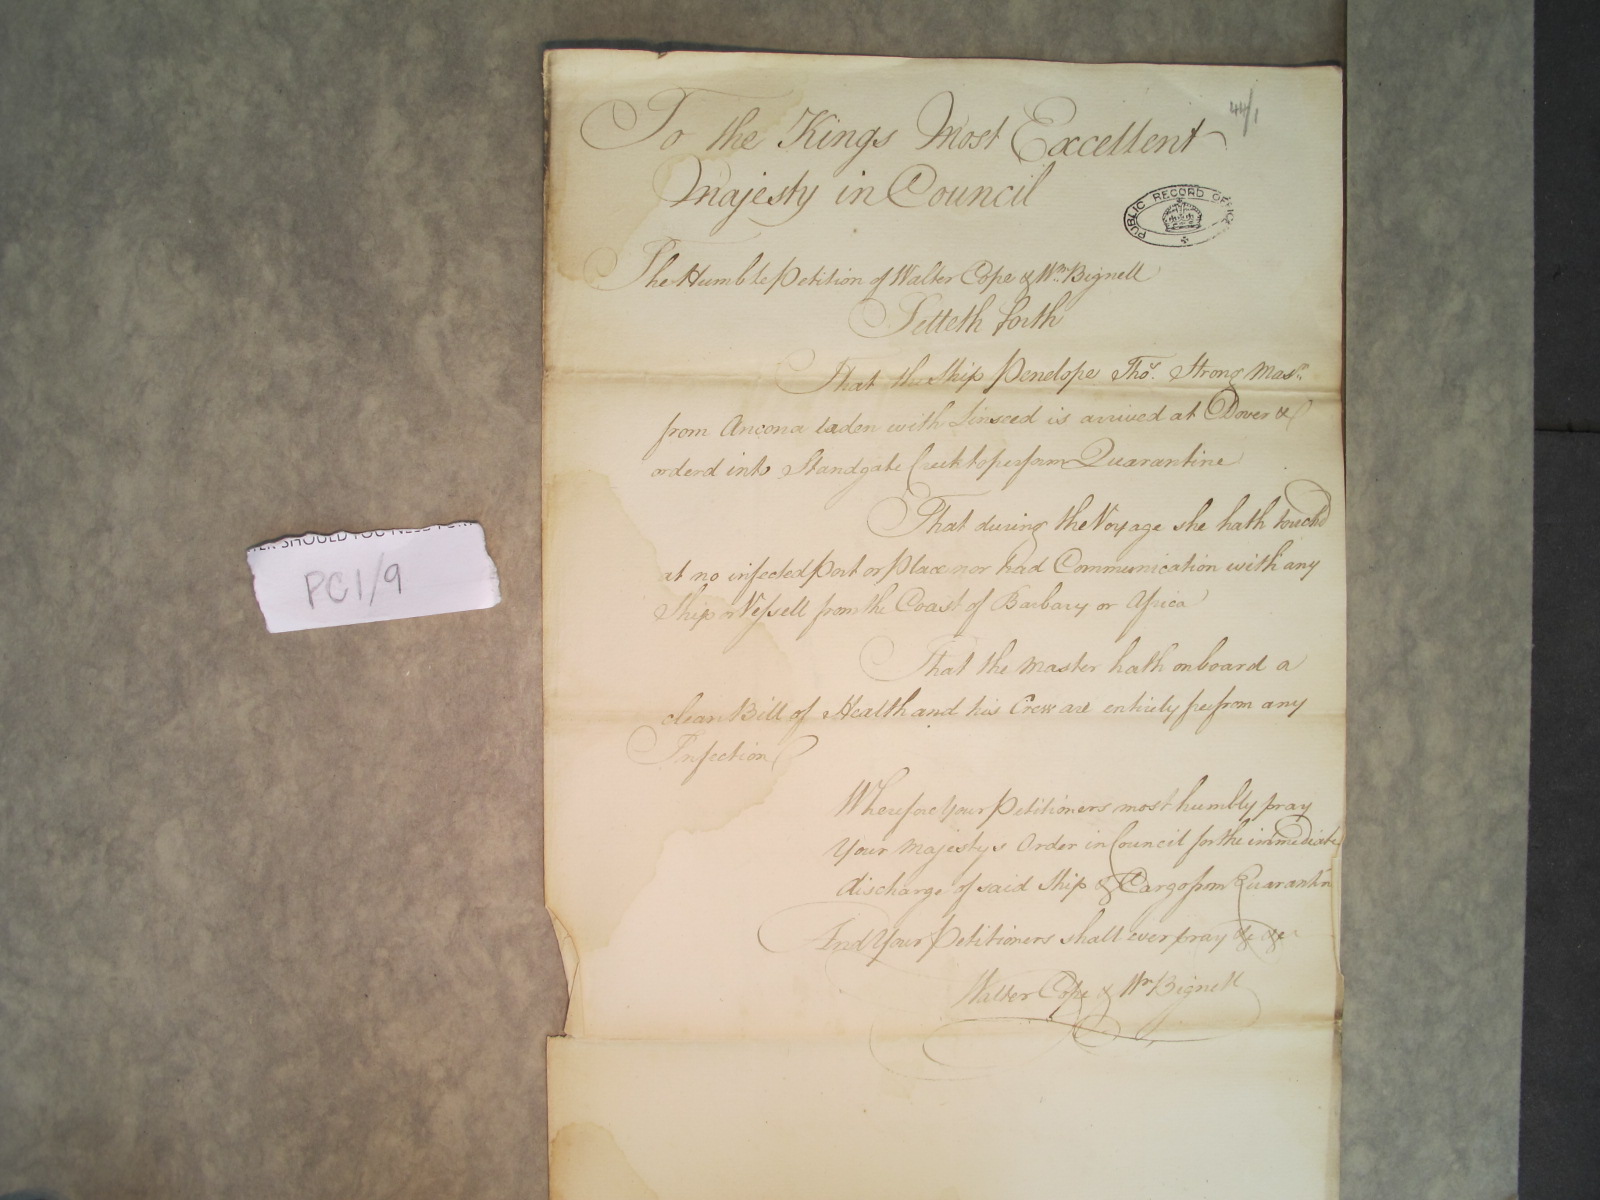 To the Kings Most Excellent
Majesty in Council
44/1
PUBLIC RECORD OFFICE
The Humble Petition of Walter Cope & Wm. Bignell
Setteth forth
That the Ship Penelope Thos. Strong Mastr.
from Ancona laden with Linseed is arrived at Dover &
orderd into Standgate Creek to perform Quarantine
That during the Voyage she hath touchd
at no infected Port or Place nor had Communication with any
Ship or Vessell from the Coast of Barbary or Africa
That the Master hath onboard a
clean Bill of Health and his Crew are entirely free from any
Infection
Wherefore Your Petitioners most humbly pray
Your Majestys Order in Council for the immediate
discharge of said Ship & Cargo from Quarantin
And Your Petitioners shall ever pray &c &c
Walter Cope & Wm Bignell
SHOULD YOU NEED
PC1/9